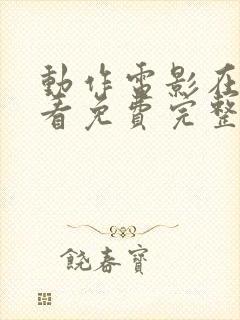 動作電影在
看免費完整
饒春寶